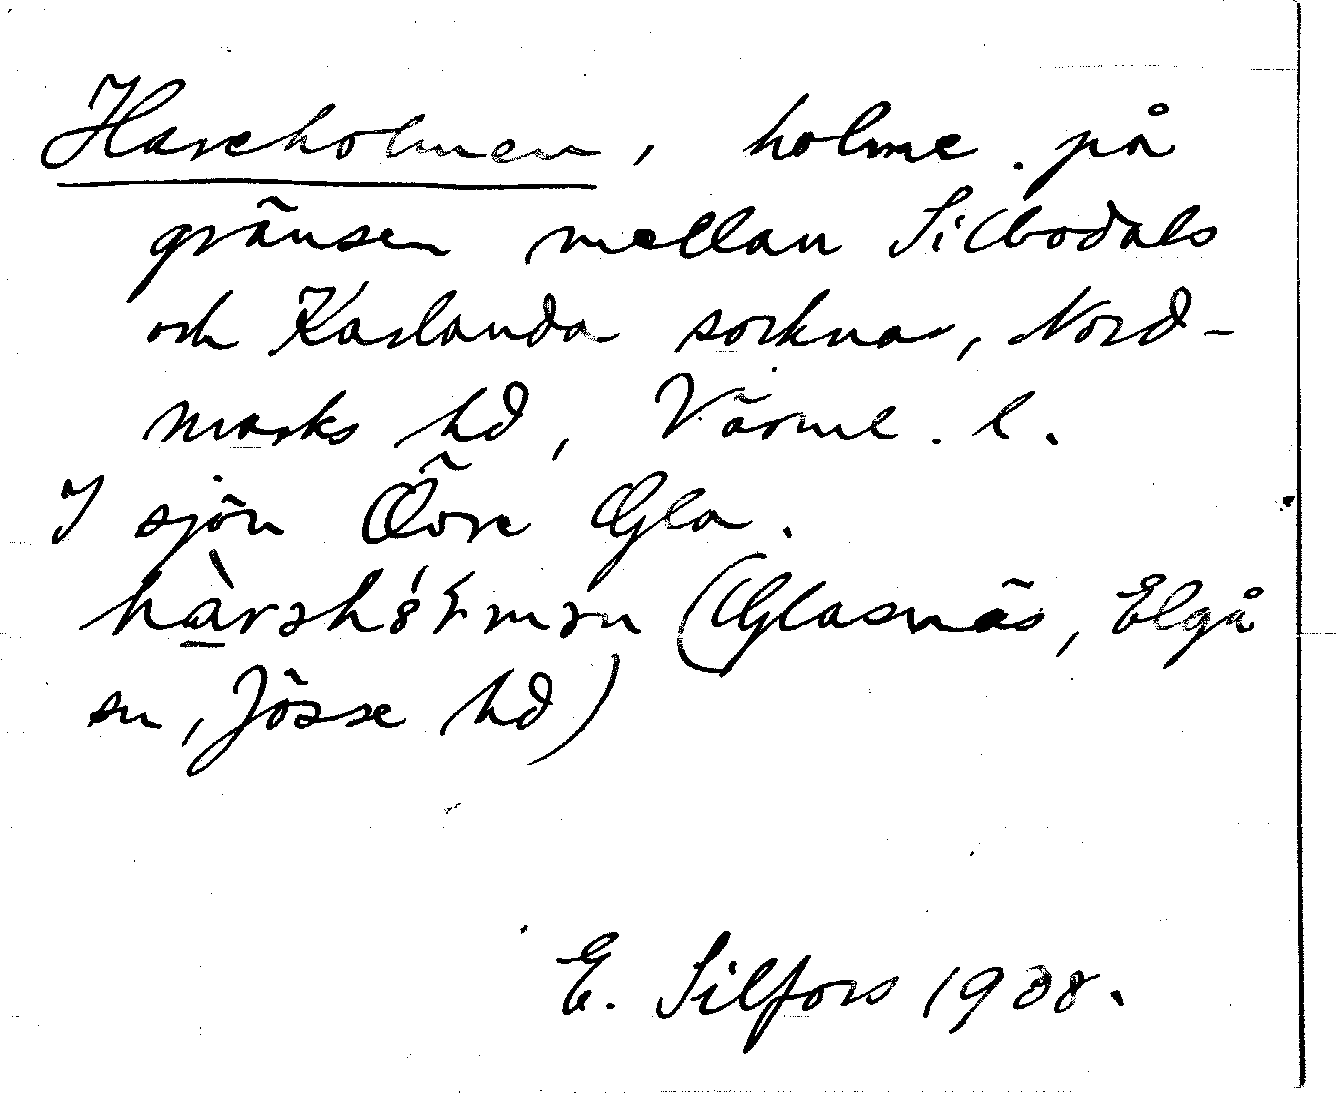 Hareholmen, holme på
gränsen mellan Silbodals
och Karlanda socknar, Nord-
marks hd, Värml. l.
I sjön Övre Gla.
(Glasnäs, Elgå
sn, Jösse hd)
E. Silfors 1938.